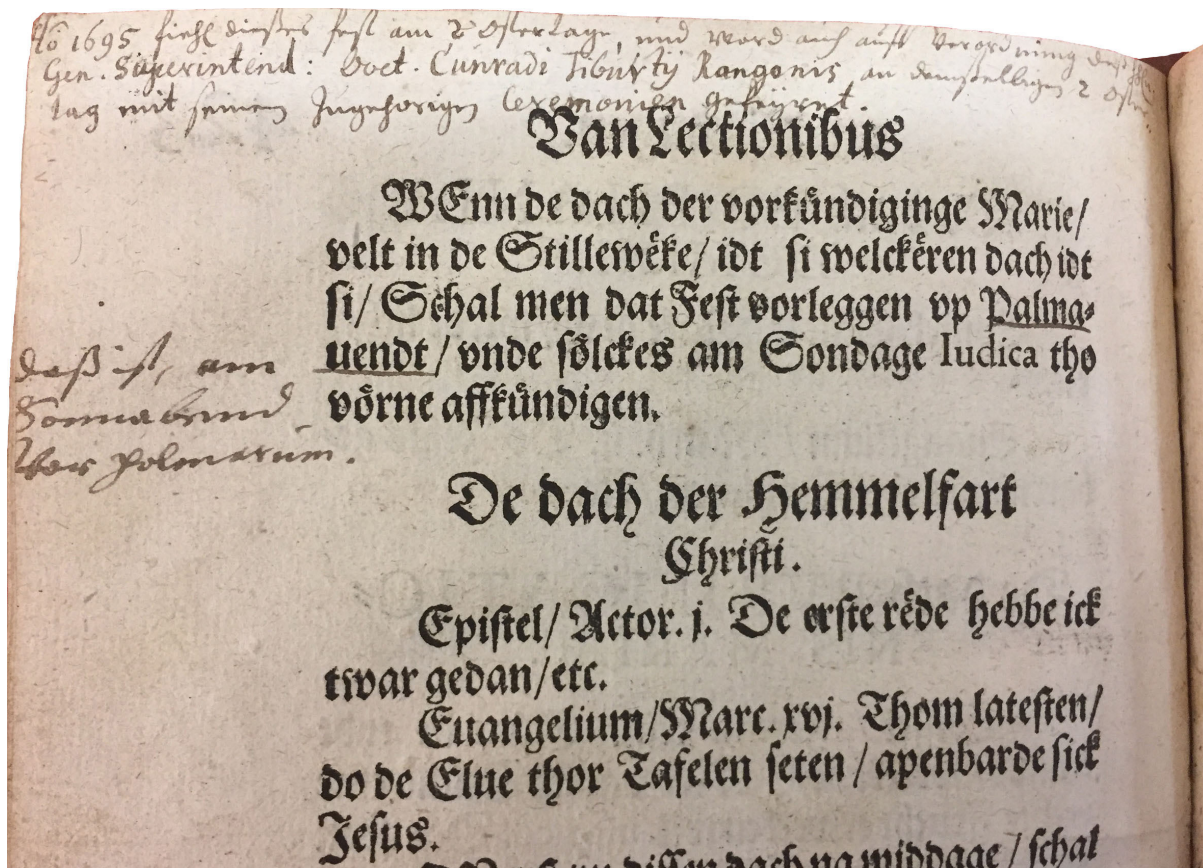 Aõ 1695 fiehl dießes fest am 2 Ostertage, und ward auch auff Verordnung des
Gen. Superintend: Doct. Cunradi Tiburtij Rangonis, an demselbigen 2 Oster
tag mit seinem Zugehörigen Ceremonien gefeyret.
Van Lectionibus
WEnn de dach der vorkündiginge Marie/
velt in de Stillewëke/ idt si welckëren dach idt
si/ Schal men dat Fest vorleggen vp Palma⸗
uendt/ vnde sölckes am Sondage Iudica tho
vörne affkündigen.
daß ist, am
Sonnabend
Vor Palmarum.
De dach der Hemmelfart
Christi.
Epistel/ Actor. j. De erste rëde hebbe ick
twar gedan/etc.
Euangelium/Marc. xvj. Thom latesten/
do de Elue thor Tafelen seten / apenbarde sick
Jesus.
dissen dach na middage / schal